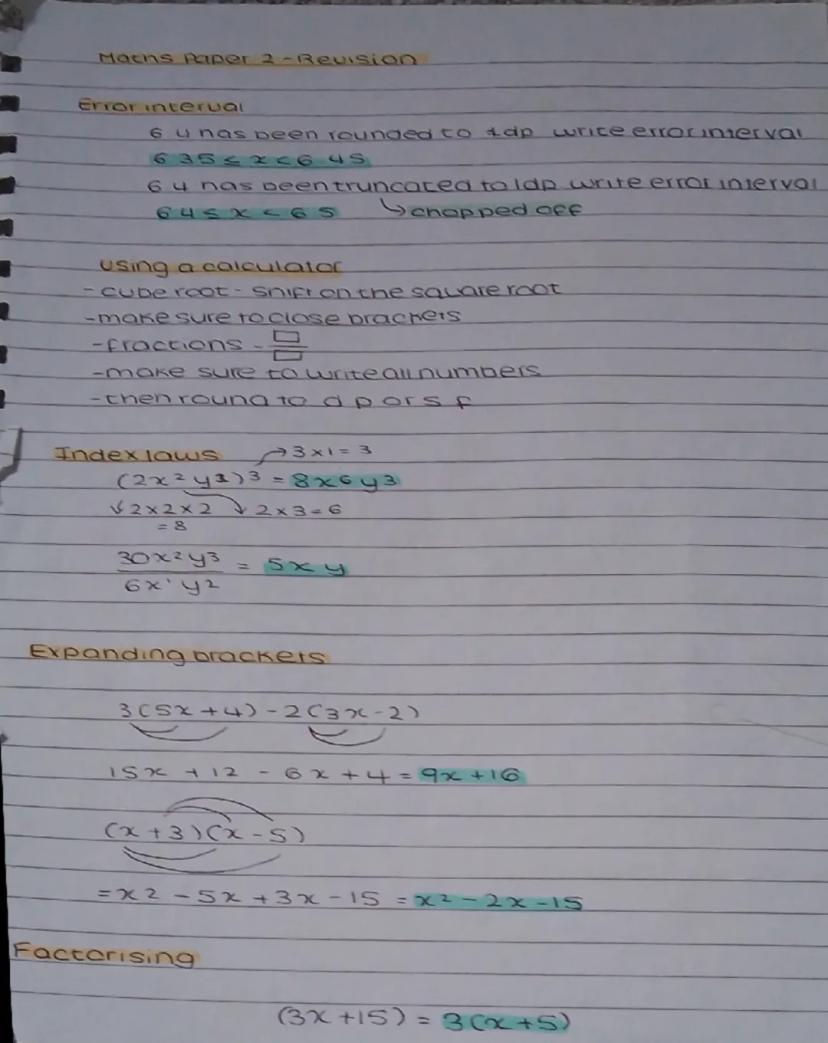 Maths Paper 2 - Revision
Error interval
6 4 has been rounded to 1dp write error interval
6 35 ≤ x < 6 45
6 4 has been truncated to 1dp write error interval
6 4 ≤ x < 6 5 ↳ chopped off
using a calculator
- cube root - shift on the square root
- make sure to close brackets
- fractions - □/□
- make sure to write all numbers
- then round to d p or s f
Index laws → 3 × 1 = 3
(2x²y¹)³ = 8x⁶y³
↓ 2×2×2 ↓ 2×3=6
= 8
30x²y³ / 6x¹y² = 5xy
Expanding brackets
3(5x+4) - 2(3x-2)
15x + 12 - 6x + 4 = 9x + 16
(x+3)(x-5)
= x² - 5x + 3x - 15 = x² - 2x - 15
Factorising
(3x+15) = 3(x+5)